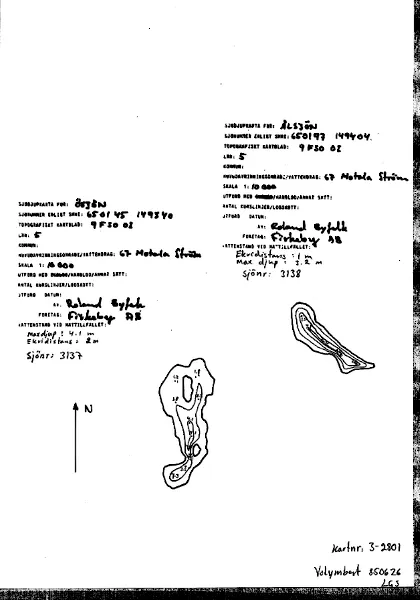 SJÖDJUPKARTA FÖR: ÅLSJÖN
SJÖNUMMER ENLIGT SMHI: 650197 149404
TOPOGRAFISKT KARTBLAD: 9 F SO 02
LÄN: 5
KOMMUN:
HUVUDAVRINNINGSOMRÅDE/VATTENDRAG: 67 Motala Ström
SKALA 1: 10 000
UTFÖRD MED EKOLOD/HANDLOD/ANNAT SÄTT:
ANTAL KURSLINJER/LODSKOTT:
UTFÖRD DATUM:
AV: Roland Byfalk
FÖRETAG: Fiskeby AB
VATTENSTÅND VID MÄTTILLFÄLLET:
Ekvidistans : 1 m
Max djup : 3.2 m
Sjönr: 3138
SJÖDJUPKARTA FÖR: ÖSJÖN
SJÖNUMMER ENLIGT SMHI: 650145 149340
TOPOGRAFISKT KARTBLAD: 9 F SO 02
LÄN: 5
KOMMUN:
HUVUDAVRINNINGSOMRÅDE/VATTENDRAG: 67 Motala Ström
SKALA 1: 10 000
UTFÖRD MED EKOLOD/HANDLOD/ANNAT SÄTT:
ANTAL KURSLINJER/LODSKOTT:
UTFÖRD DATUM:
AV: Roland Byfalk
FÖRETAG: Fiskeby AB
VATTENSTÅND VID MÄTTILLFÄLLET:
Maxdjup : 4.1 m
Ekvidistans : 2 m
Sjönr: 3137
N
Kartnr: 3-2801
Volymber 850626
LGS